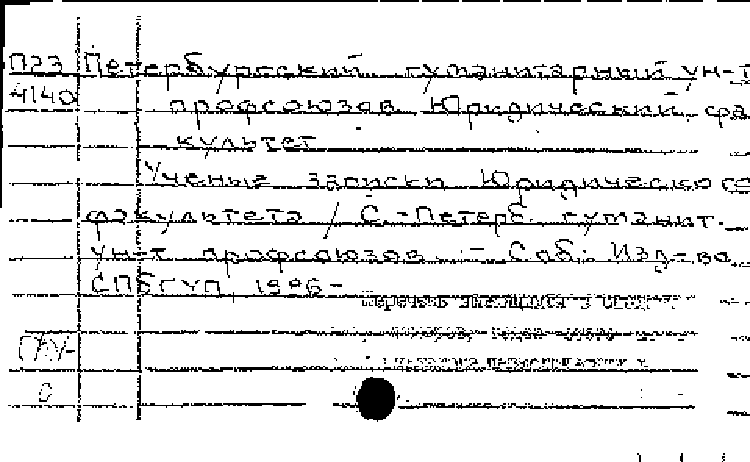 П23 Петербургский гуманитарный ун-т
4140 профсоюзов Юридический фа
культет
Ученые записки Юридического
факультета / С.-Петерб. гуманит.
ун-т профсоюзов - Спб.: Изд-во
СПбГУП, 1996-